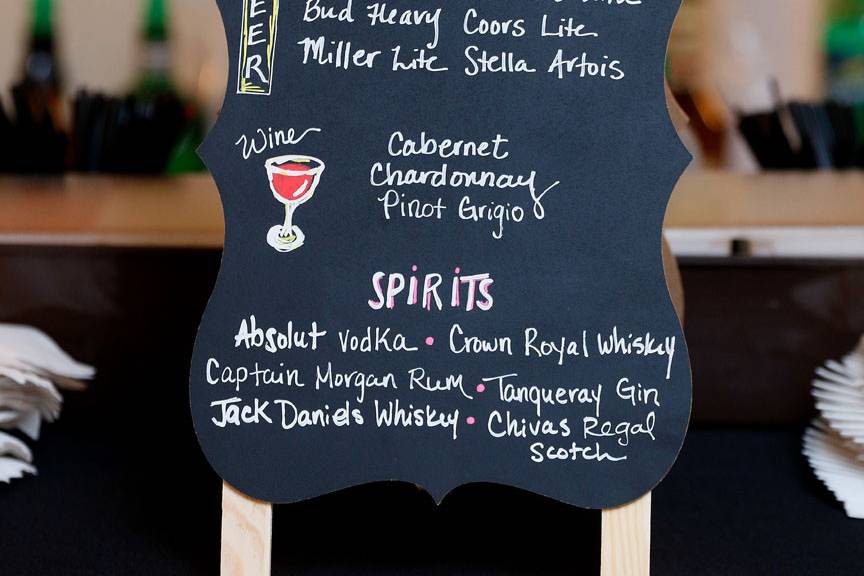 EER
Bud Heavy Coors Lite
Miller Lite Stella Artois
Wine
Cabernet
Chardonnay
Pinot Grigio
SPIRITS
Absolut vodka • Crown Royal Whiskey
Captain Morgan Rum • Tanqueray Gin
Jack Daniels Whiskey • Chivas Regal
Scotch